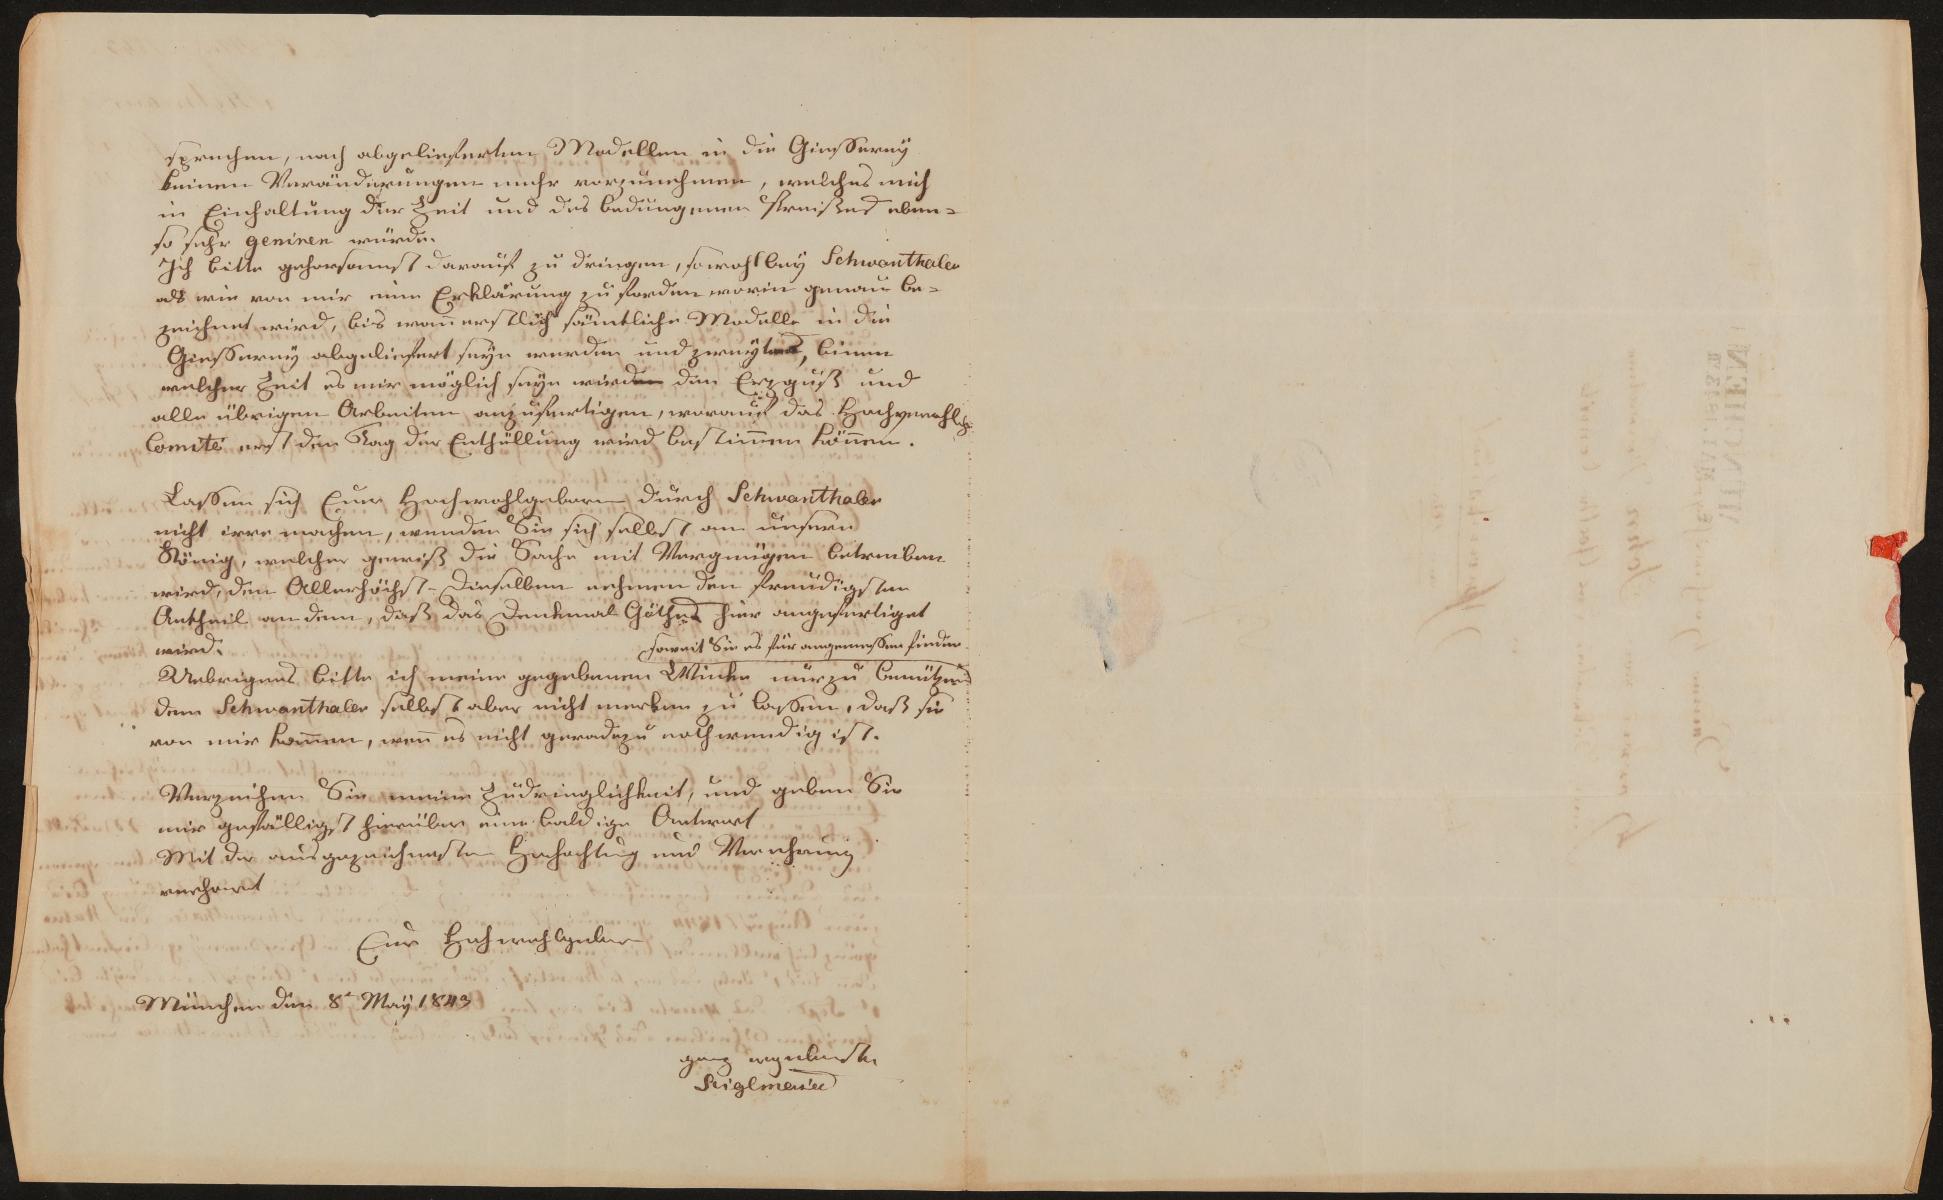 sprechen, nach abgelieferten Modellen in die Giesserey
keinen Veränderungen mehr vorzunehmen, welches mich
in Einhaltung der Zeit und des bedungenen Preißes eben=
so sehr geniren würde.
Ich bitte gehorsamst darauf zu dringen, sowohl bey Schwanthaler
als wie von mir eine Erklärung zu fordern worin genau be=
zeichnet wird, bis wann erstlich sämtliche Modelle in die
Giesserey abgeliefert seyn werden und zweytens, binnen
welcher Zeit es mir möglich seyn würde den Erzguß und
alle übrigen Arbeiten anzufertigen, worauf das Hochverehrl.
Comité erst den Tag der Enthüllung wird bestimmen können.
Lassen sich Euer Hochwohlgeboren durch Schwanthaler
nicht irre machen, wenden Sie sich selbst an unsern
König, welcher gewiß die Sache mit Vergnügen betreiben
wird, den Allerhöchst-Dieselben nehmen den freudigsten
Antheil an dem, daß das Denkmal Göthes hier angefertiget
wird.
soweit Sie es für angemessen finden
Uebrigens bitte ich meine gegebenen Winke nur zu benützen
dem Schwanthaler selbst aber nicht merken zu lassen, daß sie
von mir kommen, wenn es nicht geradezu nothwendig ist.
Verzeihen Sie meine Zudringlichkeit, und geben Sie
mir gefälligst hierüber eine baldige Antwort
Mit der ausgezeichnesten Hochachtung und Verehrung
verharrt
Euer Hochwohlgeboren
München den 8t May 1843
ganz ergebenster
Stiglmaier
MÜNCHEN